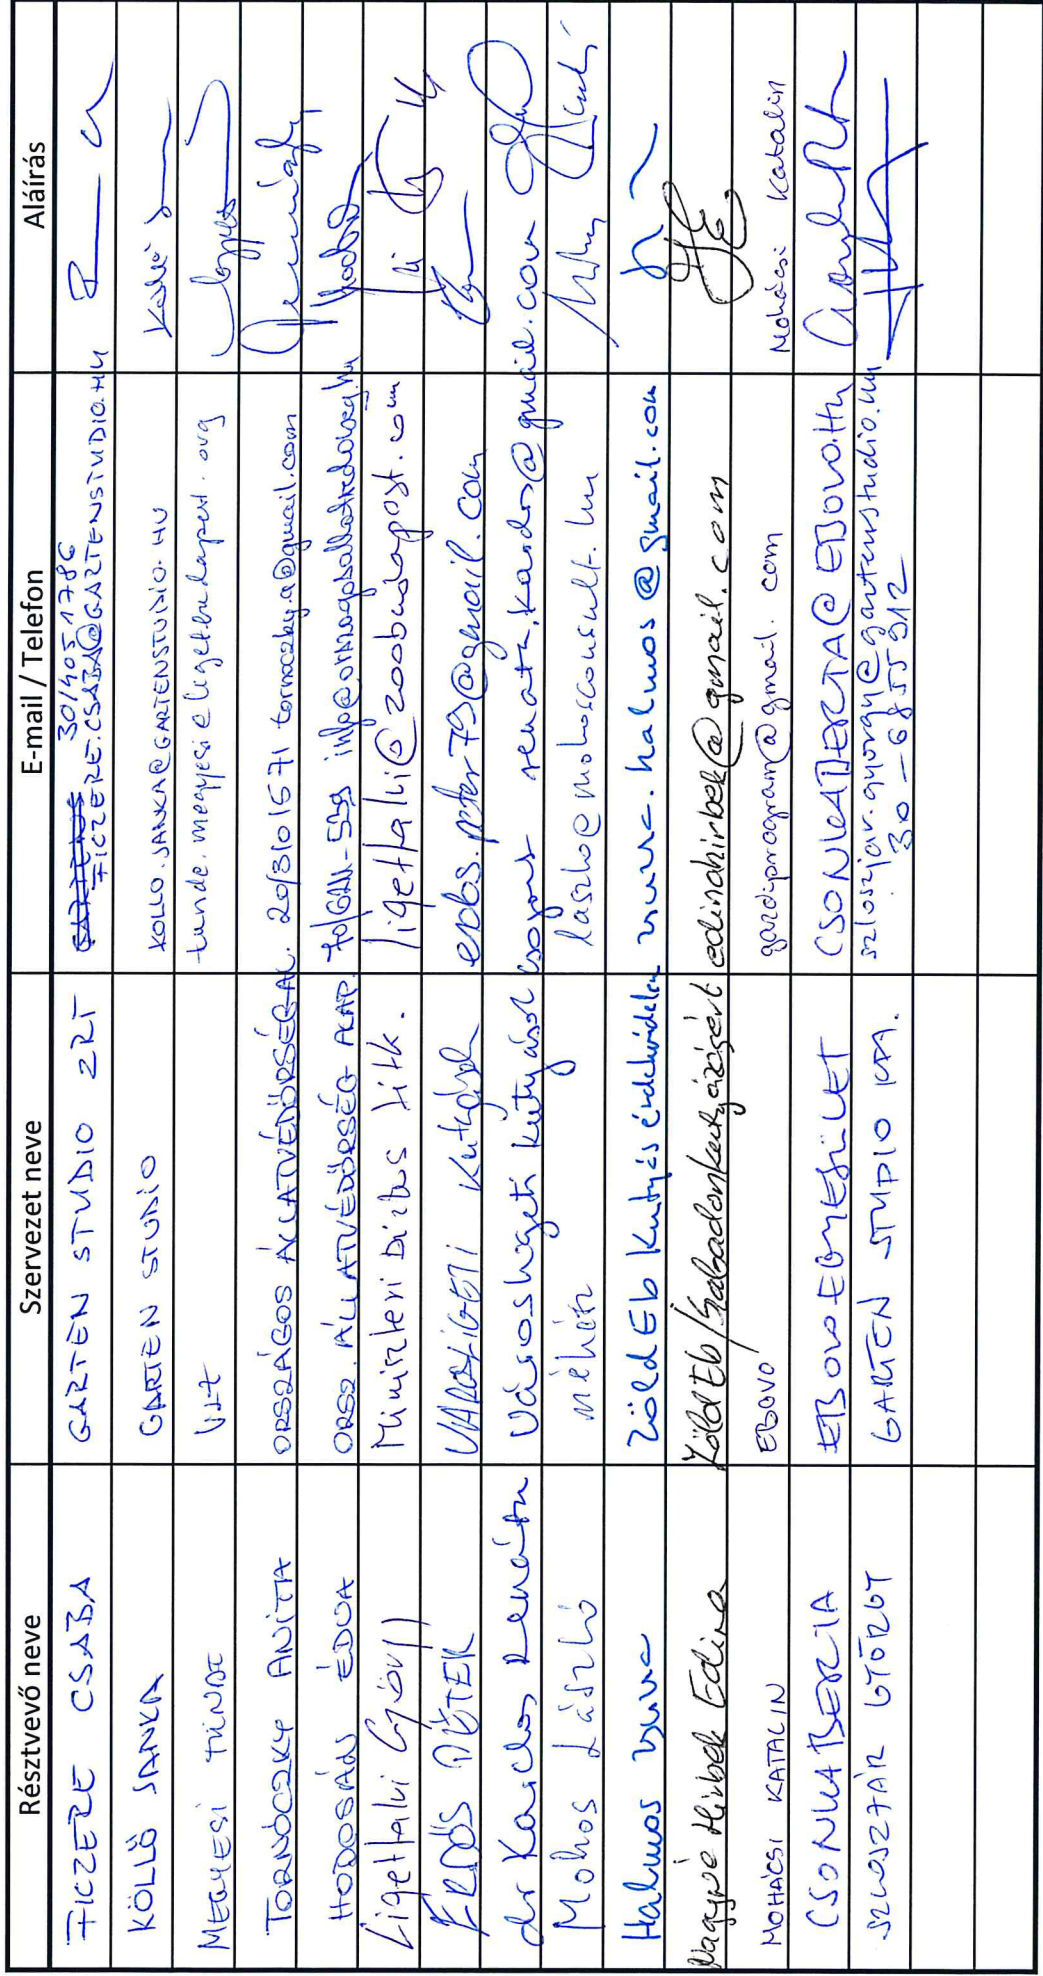 Résztvevő neve Szervezet neve E-mail / Telefon Aláírás
FICZERE CSABA GARTEN STUDIO ZRT 30/4051786
FICZERE.CSABA@GARTENSTUDIO.HU
KÖLLŐ JANKA GARTEN STUDIO KOLLO.JANKA@GARTENSTUDIO.HU
MEGYESI TÜNDE tunde.megyesi@ligetbudapest.org
TORNÓCZKY ANITA ORSZÁGOS ÁLLATVÉDŐRSÉG AL. 20/3101571 tornoczky.a@gmail.com
HODOSÁN ÉDUA ORSZ. ÁLLATVÉDŐRSÉG ALAP. info@orszagosallatvedorseg.hu
Ligethalvi György Miniszteri Biztos Titk. ligethalvi@zoobudapest.com
ERDŐS PÉTER VÁROSLIGETI Kutyások erdos.peter79@gmail.com
dr Kardos Renáta Városligeti kutyások csoport renata.kardos@gmail.com
Mohos László méhész laszlo@mohosconsult.hu
Halmos Zsuzsa Zöld Eb Kutyás érdekvédelem zsuzsa.halmos@gmail.com
Nagyné Hirbek Edina Zöld Eb/Szabadonkutyázásért edinahirbek@gmail.com
MOHÁCSI KATALIN EBOVO gardiprogram@gmail.com Mohácsi Katalin
CSONKA BERTA EBOVO EGYESÜLET CSONKABERTA@EBOVO.HU
SZLOSZJÁR GYÖRGY GARTEN STUDIO Kft. szloszjar.gyorgy@gartenstudio.hu
30-6855912